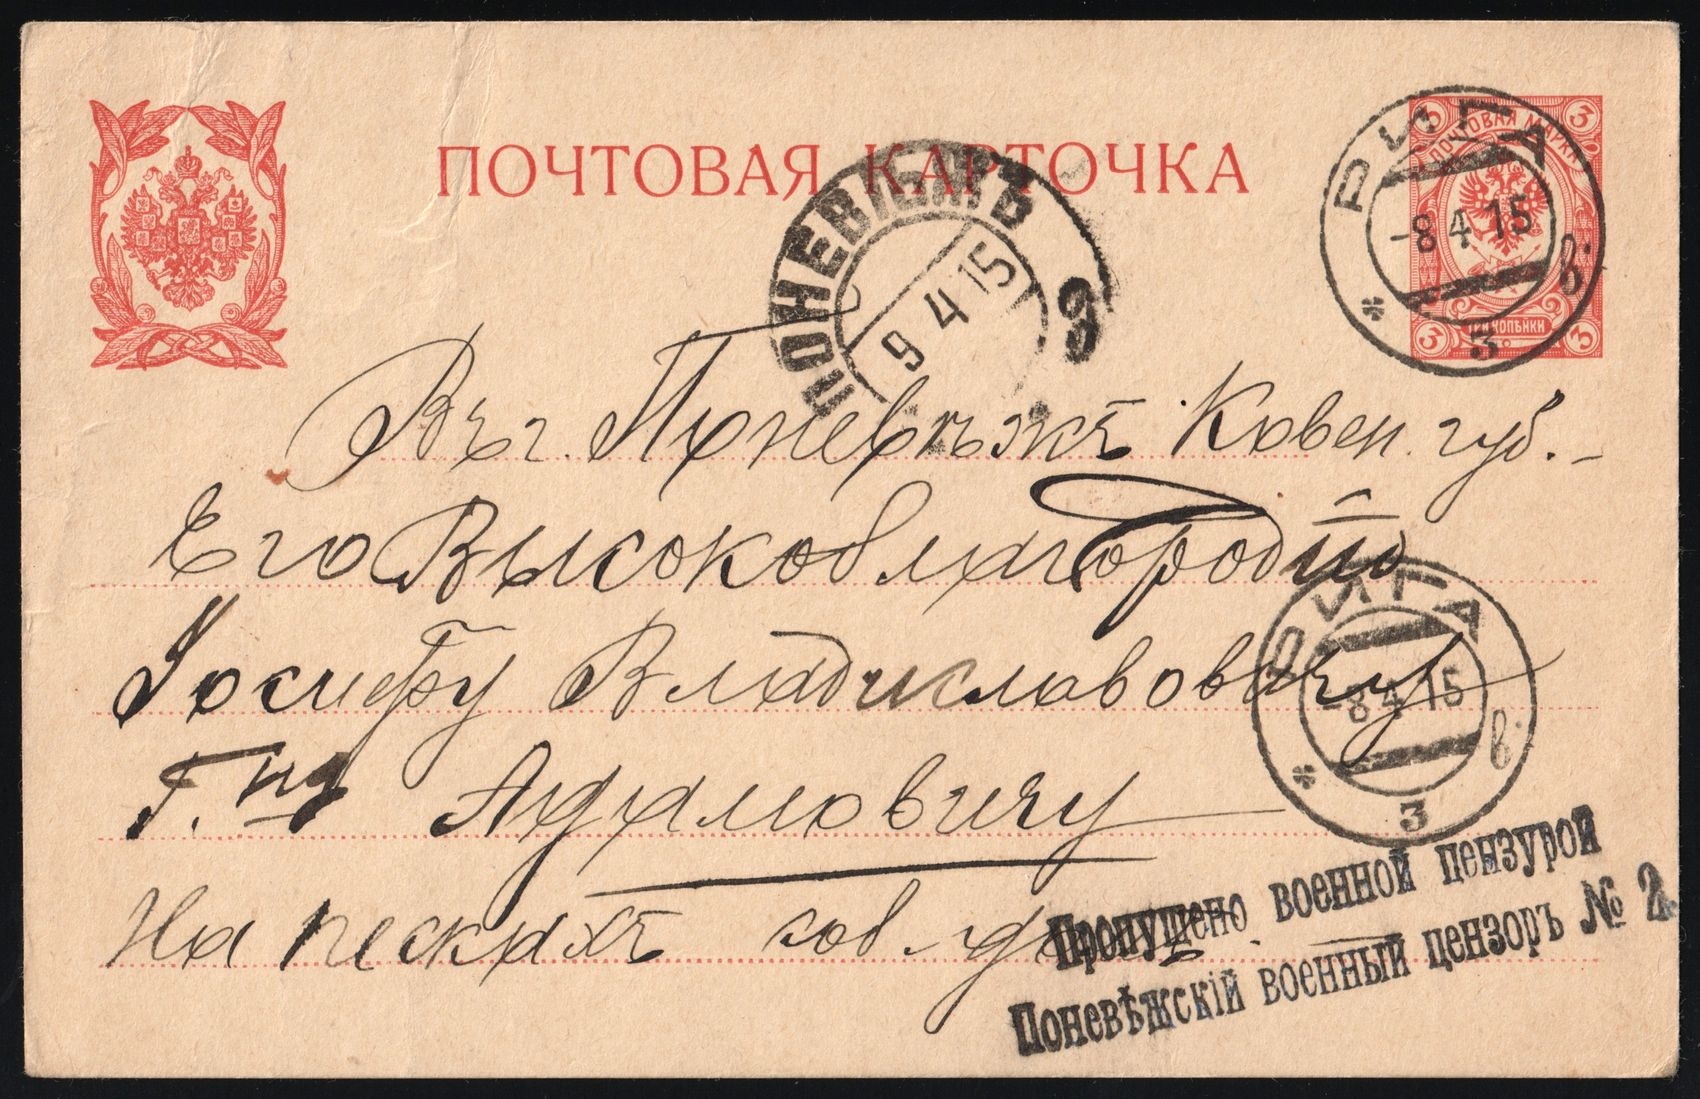 ПОЧТОВАЯ КАРТОЧКА
ПОЧТОВАЯ МАРКА
3 3
3 КОПѢЙКИ 3
РИГА
-8 4 15
в.
* 3
ПОНЕВѢЖЪ
9 4 15
З
Въ г. Поневѣжъ Ковен. губ.-
Его Высокоблагородію
Іосифу Владиславовичу
РИГА
-8 4 15
в.
* 3
Г.ну Адамовичу
На пескахъ соб.
Пропущено военной цензурой
Поневѣжскій военный цензоръ № 2.